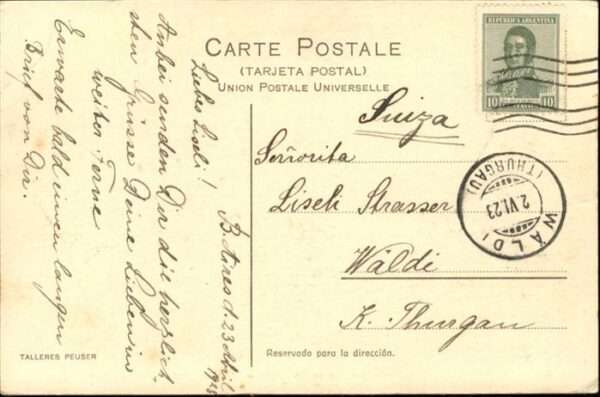 CARTE POSTALE
(TARJETA POSTAL)
UNION POSTALE UNIVERSELLE
REPÚBLICA ARGENTINA
10 10
Suiza
Señorita
Liseli Strasser
Wäldi
K. Thurgau
WÄLDI
(THURGAU)
2.VI.23
B. Aires d. 23 April
Liebes Liseli!
Anbei senden Dir die herzlich
sten Grüsse Deine Lieben in
weiter Ferne
Erwarte bald einen langen
Brief von Dir.
TALLERES PEUSER
Reservado para la dirección.